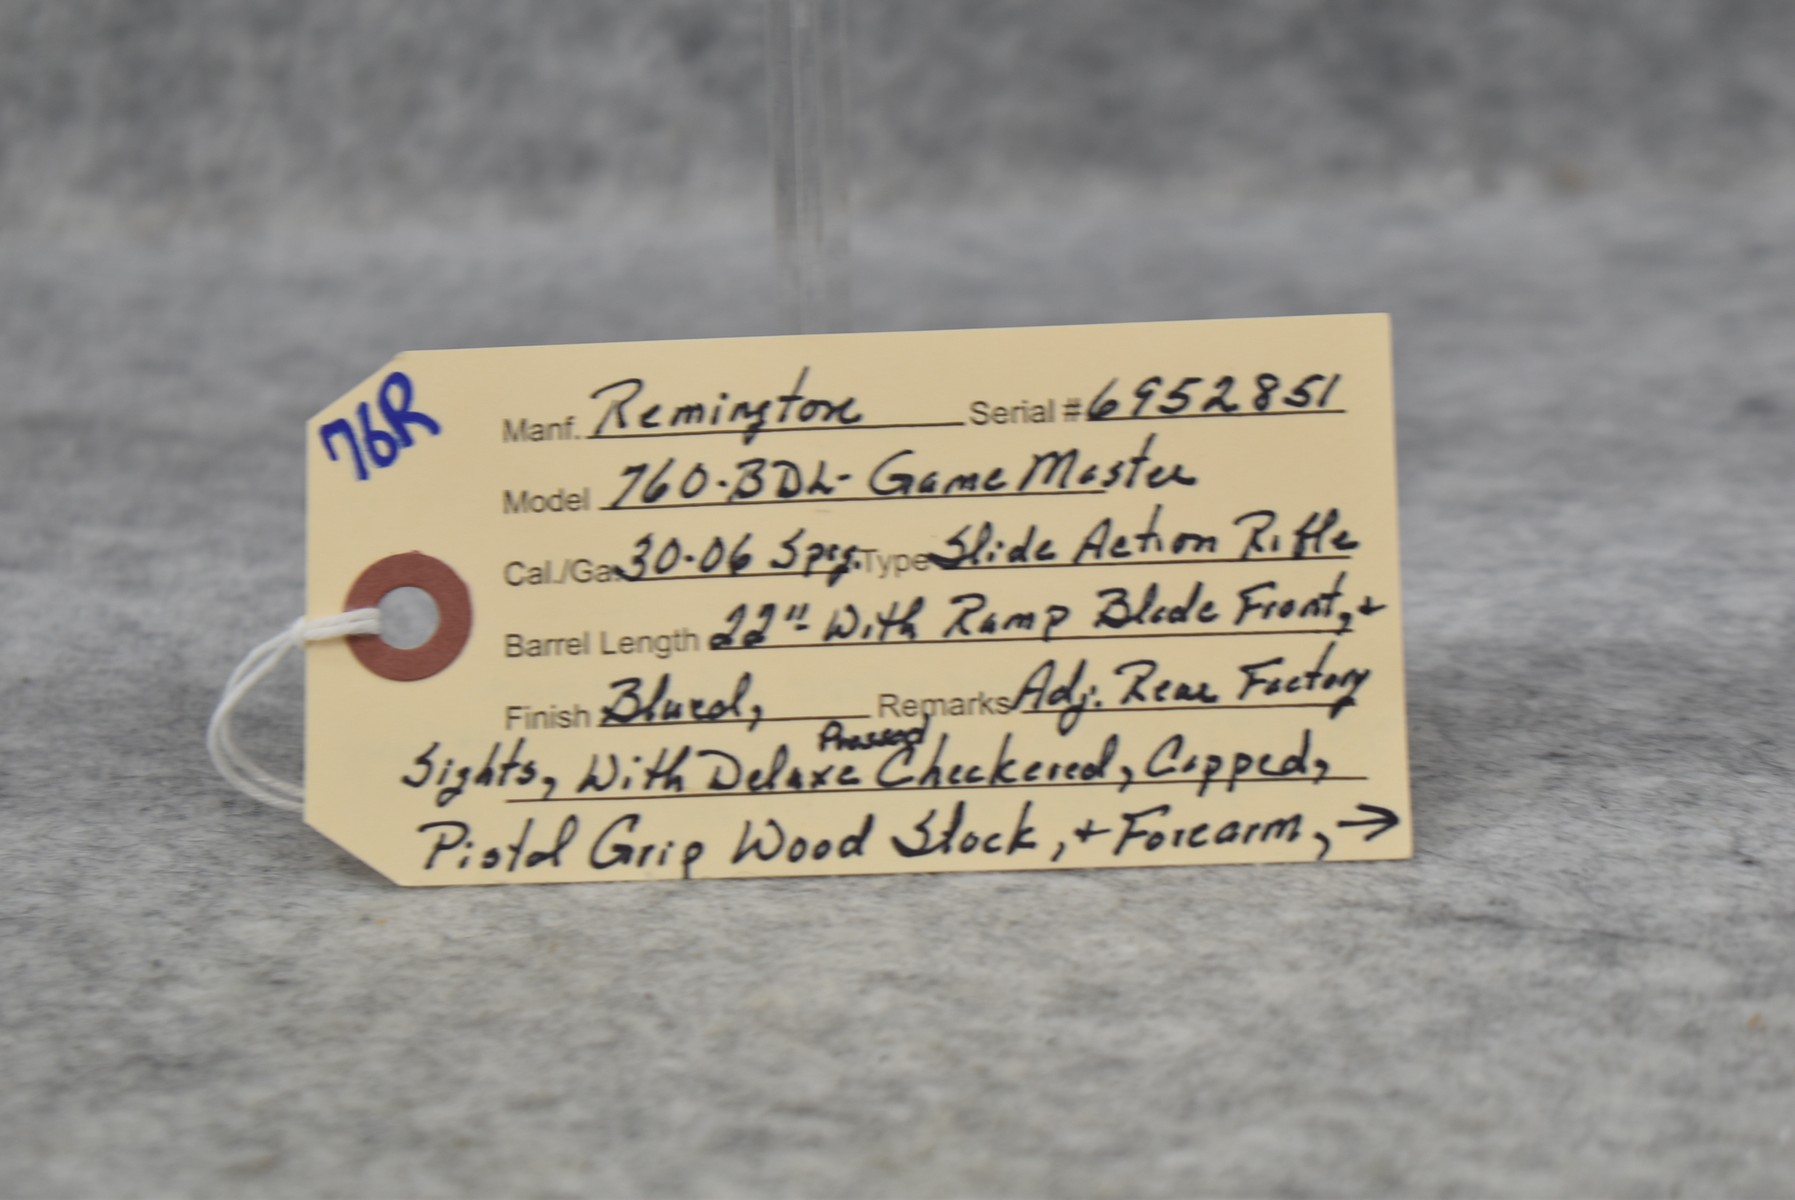 76R
Manf. Remington Serial # 6952851
Model 760-BDL- GameMaster
Cal./Ga. 30-06 Sprg. Type Slide Action Rifle
Barrel Length 22" With Ramp Blade Front, +
Finish Blued, Remarks Adj. Rear Factory
Pressed
Sights, With Deluxe Checkered, Capped,
Pistol Grip Wood Stock, + Forearm, →